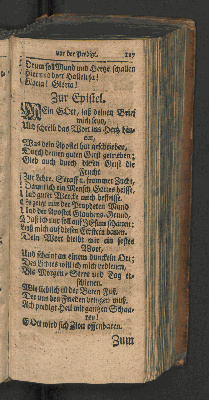 vor der Predigt. 117
Drum soll Mund und Hertze schallen
Hier und dort Halleluja!
Gloria! Gloria!
Zur Epistel.
MEin GOtt, laß deinen Brief
mich seyn,
Und schreib das Wort ins Hertz hinein,
Was dein Apostel hat geschrieben,
Durch deinen guten Geist getrieben;
Gieb auch durch diesen Geist die
Frucht
Zur Lehre, Straff u. frommer Zucht,
Damit ich ein Mensch Gottes heisse,
Und guter Wercke mich befleisse.
Es zeigt uns der Propheten Mund
Und der Apostel Glaubens-Grund,
Daß wir nur soll auf JEsum schauen:
Laß mich auf diesen Eckstein bauen.
Dein Wort bleibt wie ein festes
Wort,
Und scheint an einem dunckeln Ort;
Des Lichtes will ich mich bedienen,
Bis Morgen-Stern und Tag erschienen.
Wie lieblich ist der Boten Fuß,
Der uns den Frieden bringen muß,
Ach predigt Heil mit gantzen Schaaren!
GOtt wird sich Zion offenbaren.
Zum